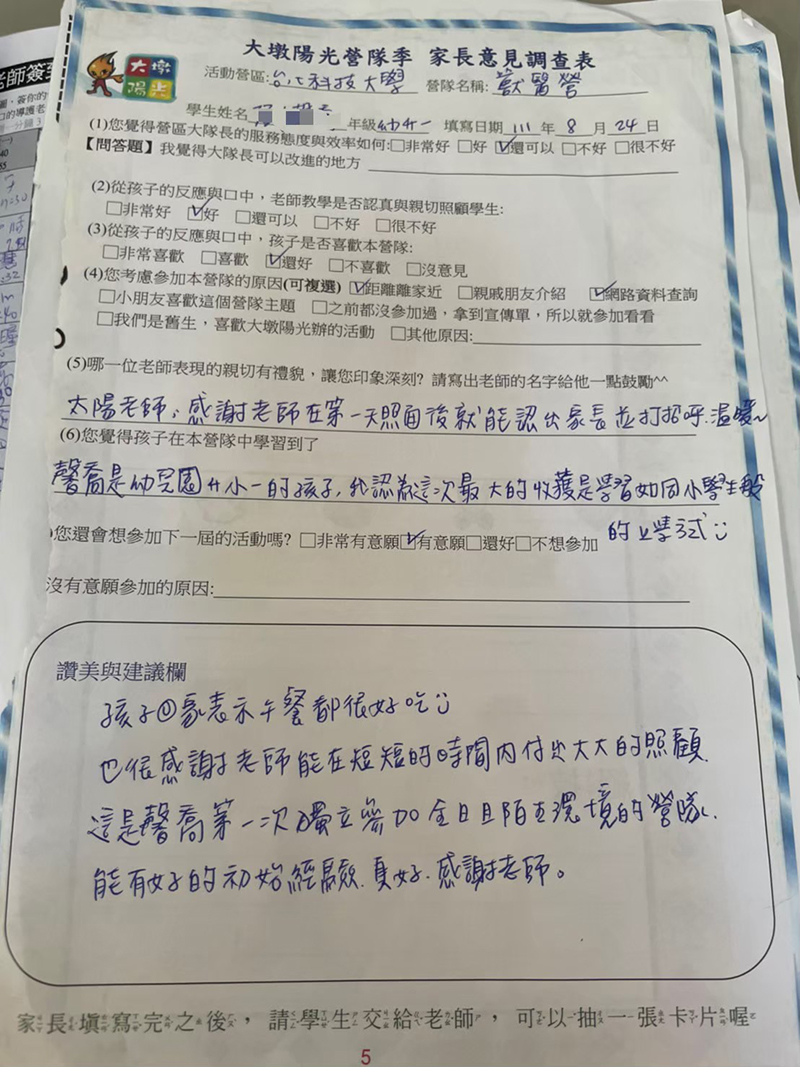 大墩陽光營隊季 家長意見調查表
大墩
陽光
活動營區:台北科技大學 營隊名稱:獸醫營
學生姓名 年級幼升一 填寫日期 111 年 8 月 24 日
(1)您覺得營區大隊長的服務態度與效率如何:□非常好 □好 ☑還可以 □不好 □很不好
【問答題】我覺得大隊長可以改進的地方
(2)從孩子的反應與口中，老師教學是否認真與親切照顧學生:
□非常好 ☑好 □還可以 □不好 □很不好
(3)從孩子的反應與口中，孩子是否喜歡本營隊:
□非常喜歡 □喜歡 ☑還好 □不喜歡 □沒意見
(4)您考慮參加本營隊的原因(可複選) ☑距離離家近 □親戚朋友介紹 ☑網路資料查詢
□小朋友喜歡這個營隊主題 □之前都沒參加過，拿到宣傳單，所以就參加看看
□我們是舊生，喜歡大墩陽光辦的活動 □其他原因:
(5)哪一位老師表現的親切有禮貌，讓您印象深刻? 請寫出老師的名字給他一點鼓勵^^
太陽老師；感謝老師在第一天照面後就能認出家長並打招呼.溫暖~
(6)您覺得孩子在本營隊中學習到了
馨喬是幼兒園升小一的孩子,我認為這次最大的收獲是學習如同小學生般
的上學試
)您還會想參加下一屆的活動嗎? □非常有意願☑有意願□還好□不想參加
沒有意願參加的原因:
讚美與建議欄
孩子回家表示午餐都很好吃
也很感謝老師能在短短的時間內付出大大的照顧.
這是馨喬第一次獨立參加全日且陌生環境的營隊.
能有好的初始經驗.真好.感謝老師。
家長填寫完之後，請學生交給老師，可以抽一張卡片喔
5
老師簽到